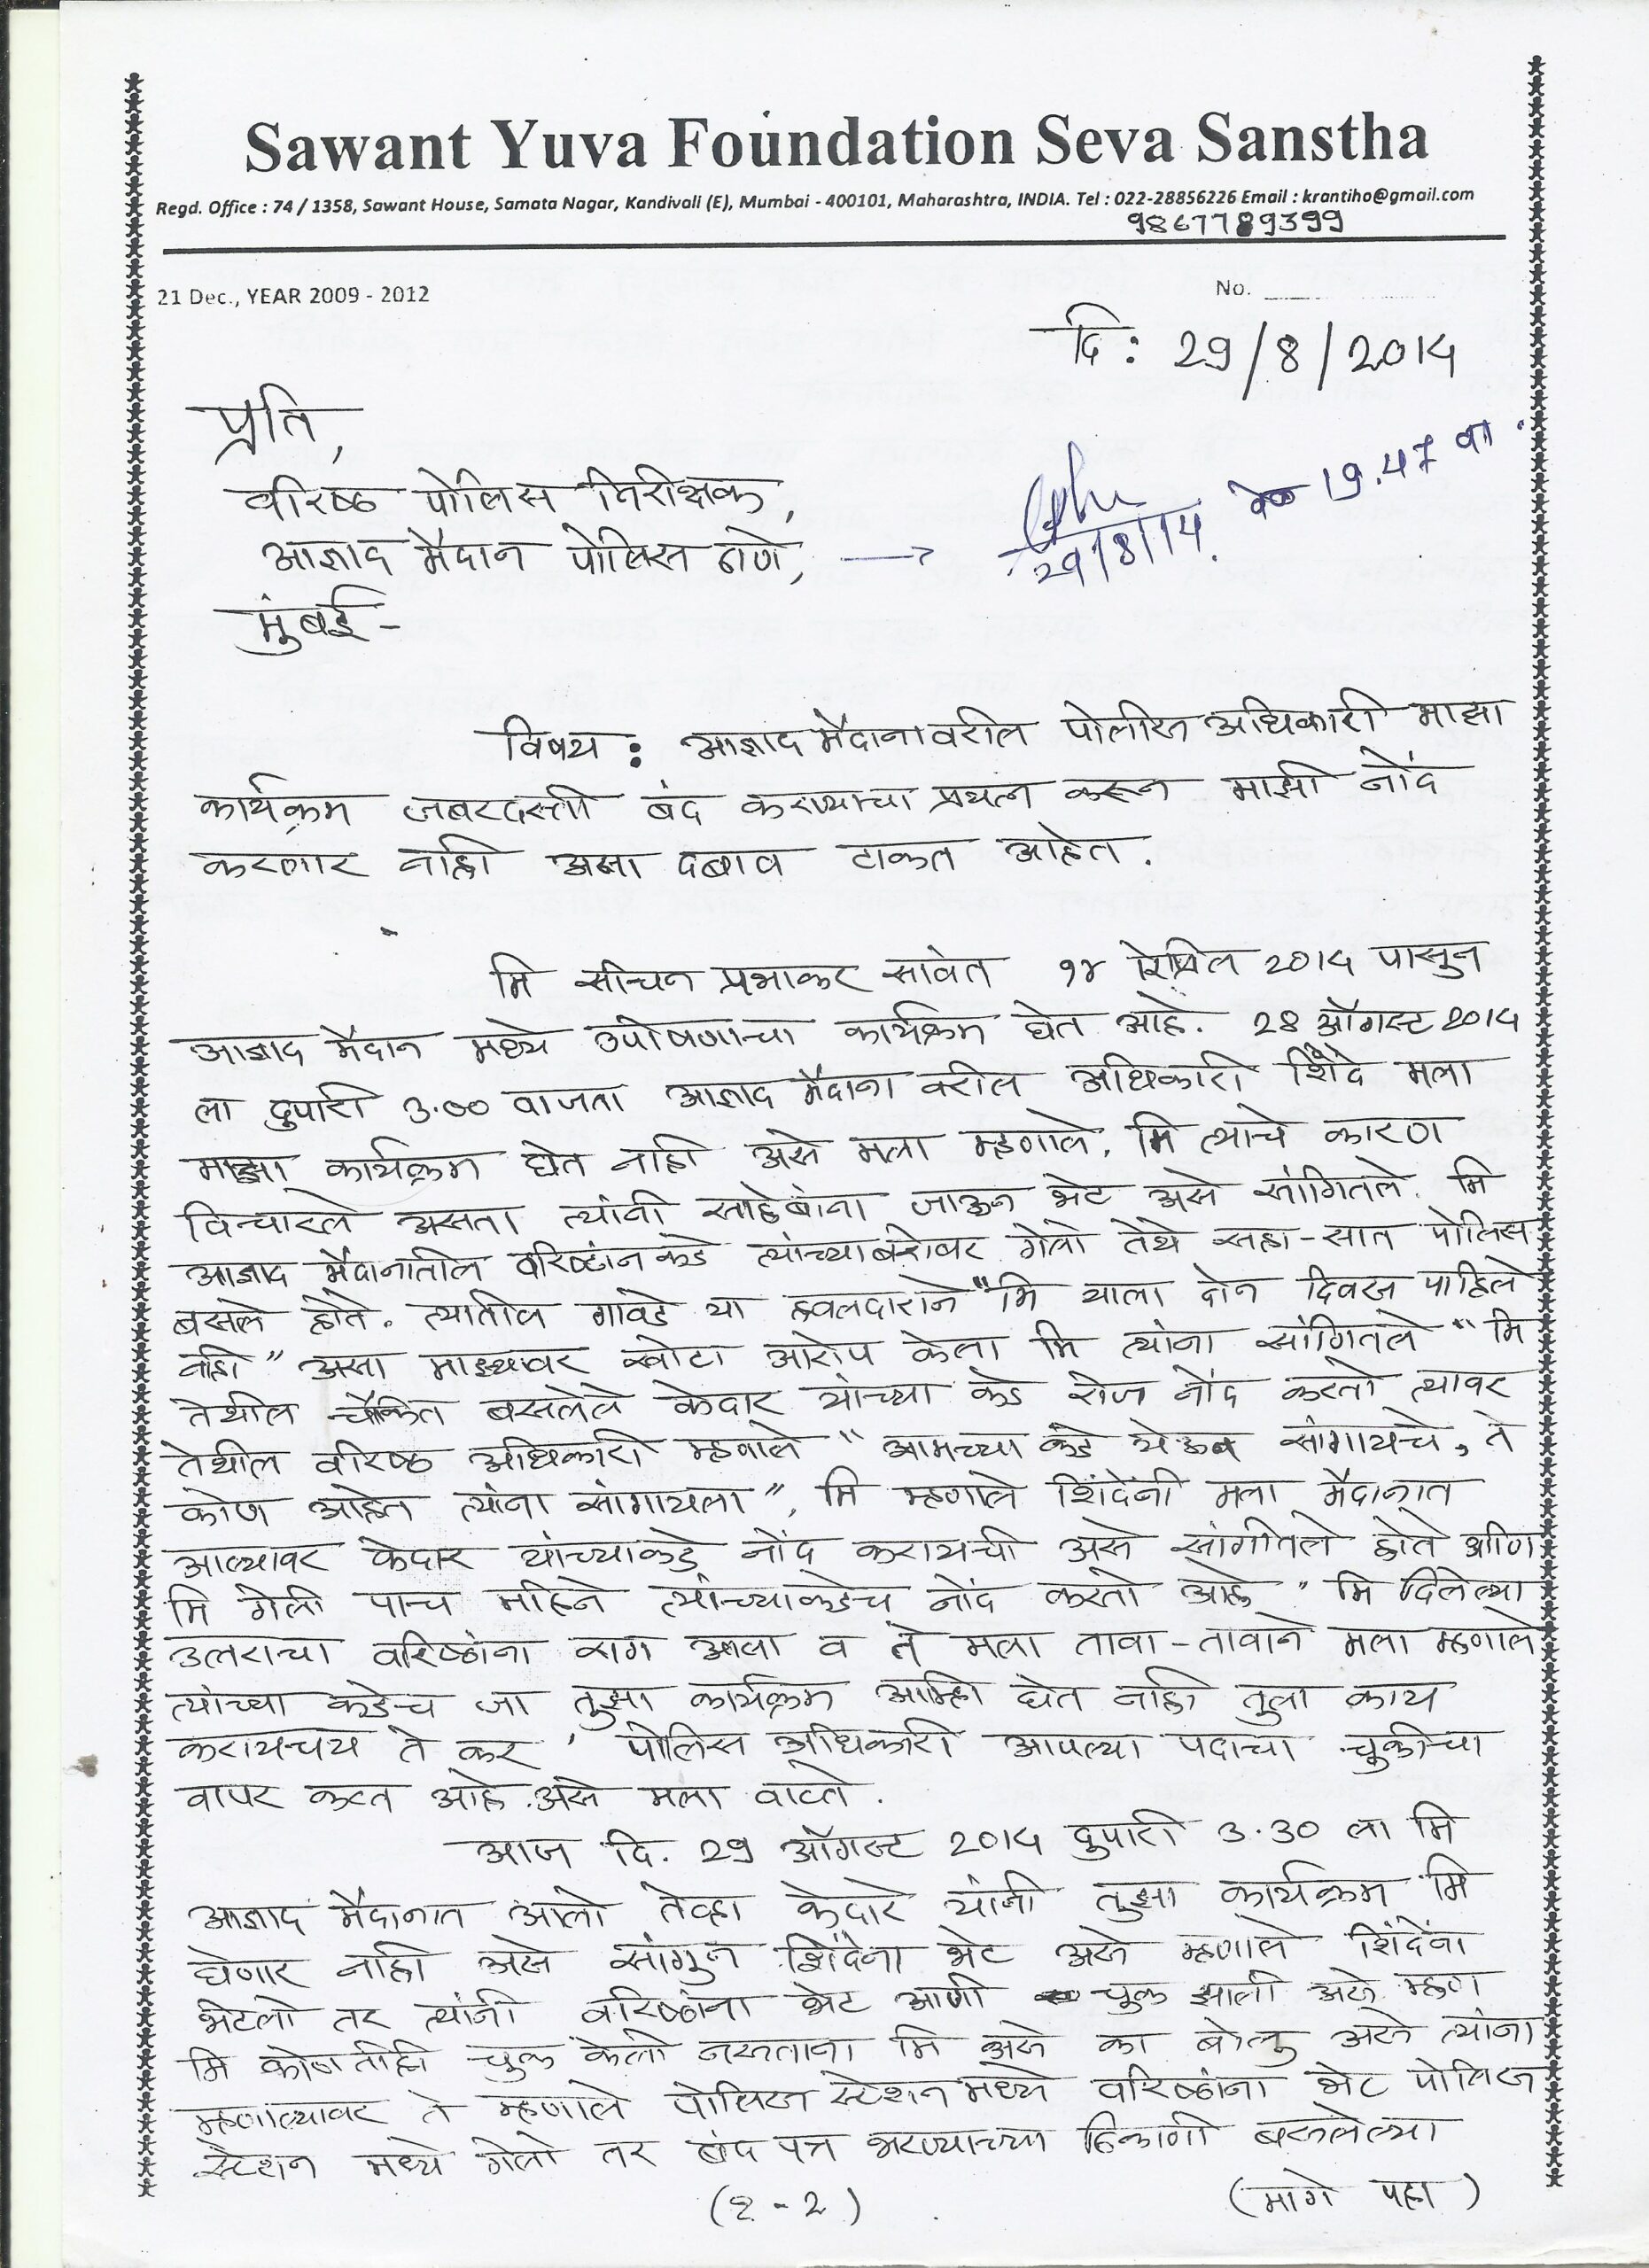 Sawant Yuva Foundation Seva Sanstha
Regd. Office : 74 / 1358, Sawant House, Samata Nagar, Kandivali (E), Mumbai - 400101, Maharashtra, INDIA. Tel : 022-28856226 Email : krantiho@gmail.com
9867789399
21 Dec., YEAR 2009 - 2012
No.
दि : 29/8/2014
प्रति,
वरिष्ठ पोलिस निरीक्षक,
आझाद मैदान पोलिस ठाणे, →
29/8/14. 19.47 वा.
मुंबई -
विषय : आझाद मैदानावरील पोलीस अधिकारी माझा
कार्यक्रम जबरदस्ती बंद करण्याचा प्रयत्न करून माझी नोंद
करणार नाही असा दबाव टाकत आहेत.
मि सचिन प्रभाकर सावंत १४ एप्रिल 2014 पासुन
आझाद मैदान मध्ये उपोषणाचा कार्यक्रम घेत आहे. 28 ऑगस्ट 2014
ला दुपारी 3.00 वाजता आझाद मैदाना वरील अधिकारी शिंदे मला
माझा कार्यक्रम घेत नाही असे मला म्हणाले. मि त्याचे कारण
विचारले असता त्यांनी साहेबांना जाऊन भेट असे सांगितले. मि
आझाद मैदानातील वरिष्ठांन कडे त्यांच्याबरोबर गेलो तेथे सहा-सात पोलिस
बसले होते. त्यातील गावडे या हवलदाराने "मि याला दोन दिवस पाहिले
नाही" असा माझ्यावर खोटा आरोप केला मि त्यांना सांगितले "मि
तेथील चौकीत बसलेले केदार यांच्या कडे रोज नोंद करतो त्यावर
तेथील वरिष्ठ अधिकारी म्हणाले "आमच्या कडे येऊन सांगायचे, ते
कोण आहेत त्यांना सांगायला". मि म्हणाले शिंदेंनी मला मैदानात
आल्यावर केदार यांच्याकडे नोंद करायची असे सांगीतले होते आणि
मि गेली पाच महिने त्यांच्याकडेच नोंद करतो आहे" मि दिलेल्या
उत्तराचा वरिष्ठांना राग आला व ते मला तावा-तावाने मला म्हणाले
त्यांच्या कडेच जा तुझा कार्यक्रम आम्ही घेत नाही तुला काय
करायचय ते कर ' पोलिस अधिकारी आपल्या पदाचा चुकीचा
वापर करत आहे असे मला वाटते.
आज दि. 29 ऑगस्ट 2014 दुपारी 3.30 ला मि
आझाद मैदानात आलो तेव्हा केदारे यांनी तुझा कार्यक्रम मि
घेणार नाही असे सांगुन शिंदेंना भेट असे म्हणाले शिंदेंना
भेटलो तर त्यांनी वरिष्ठांना भेट आणी चुक झाली असे म्हण
मि कोणतीही चुक केली नसताना मि असे का बोलु असे त्यांना
म्हणाल्यावर ते म्हणाले पोलिस स्टेशन मध्ये वरिष्ठांना भेट पोलिस
स्टेशन मध्ये गेलो तर बंद पत्र भरण्याच्या ठिकाणी बसलेल्या
(१ - २)
(मागे पहा)